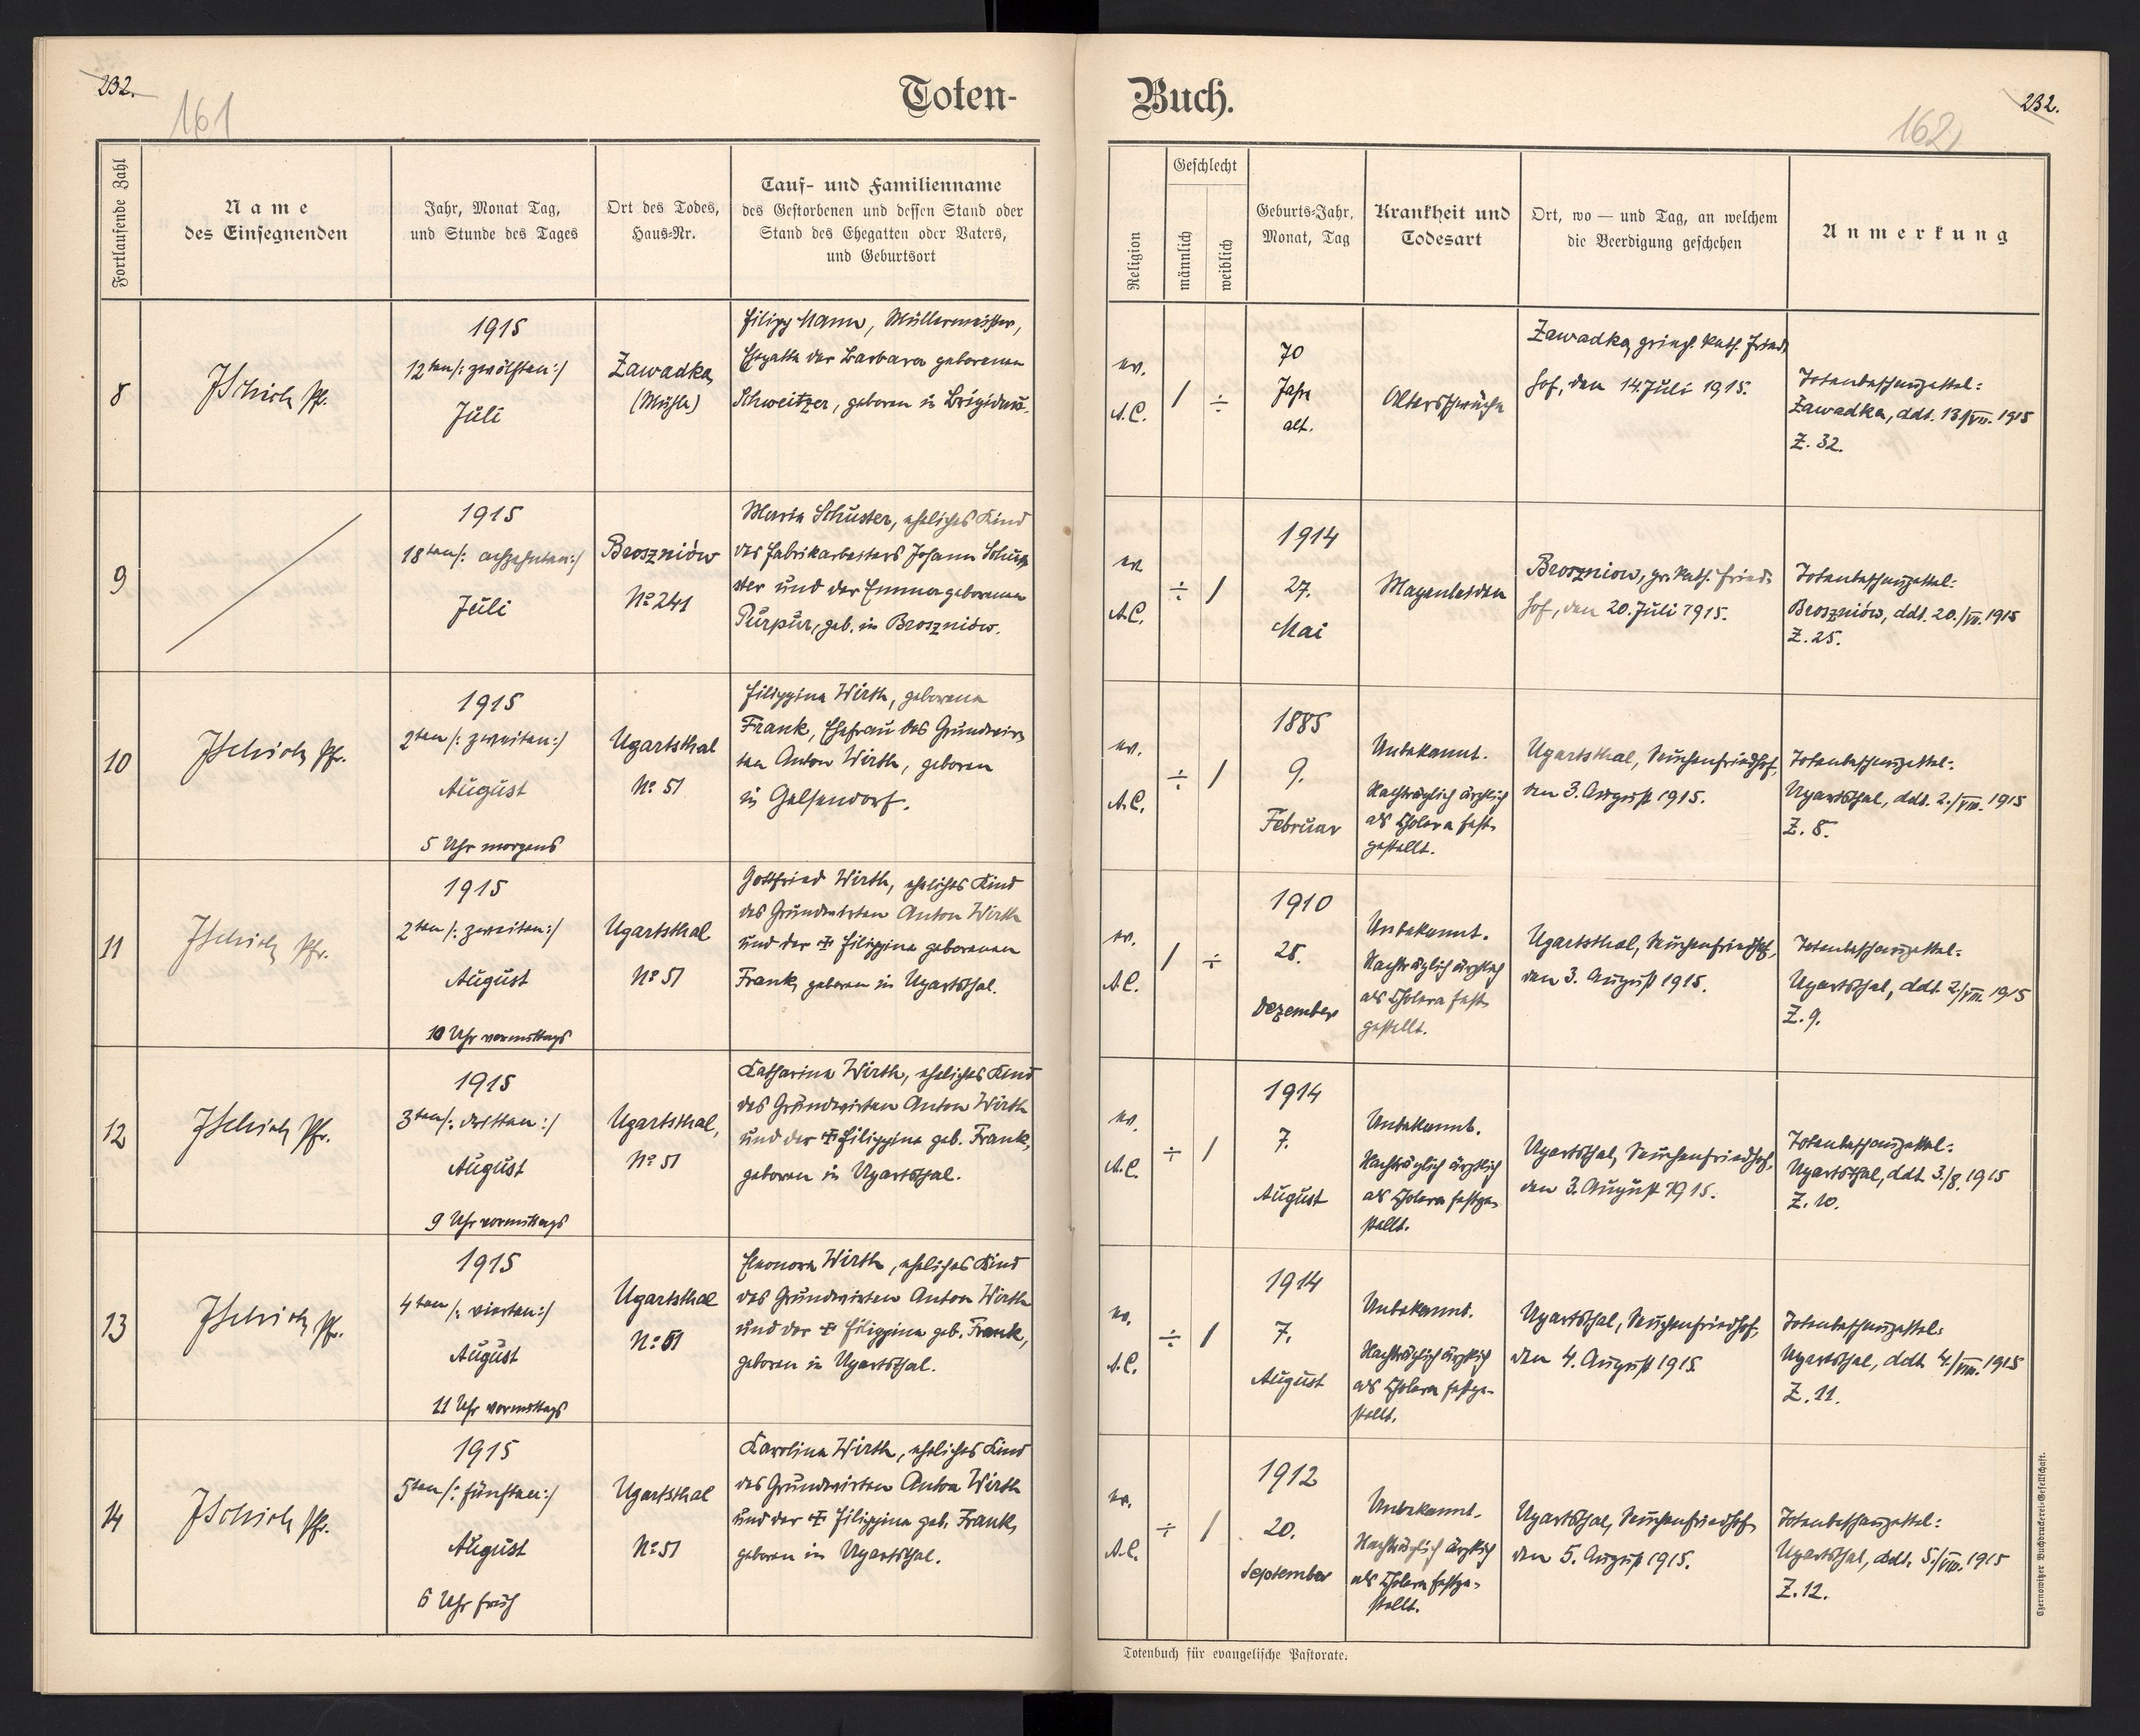 232.
161
Toten-
Fortlaufende Zahl
Name
des Einsegnenden
Jahr, Monat Tag,
und Stunde des Tages
Ort des Todes,
Haus-Nr.
Tauf- und Familienname
des Gestorbenen und dessen Stand oder
Stand des Ehegatten oder Vaters,
und Geburtsort
8
Pfr.
1915
12ten /: zwölften :/
Juli
Zawadka
(Mühle)
Filipp Mann, Müllermeister,
Ehegatte der Barbara geborenen
Schweitzer, geboren in
9
1915
18ten /: achzehnten :/
Juli
Broszniów
No 241
Maria Schuster, eheliches Kind
des Fabrikarbeiters Johann Schu-
ster und der Emma geborenen
Purpur, geb. in Broszniów.
10
Pfr.
1915
2ten /: zweiten :/
August
5 Uhr morgens
Ugartsthal
No 51
Filippina Wirth, geborene
Frank, Ehefrau des Grundwir-
ten Anton Wirth, geboren
in Gelsendorf.
11
Pfr.
1915
2ten /: zweiten :/
August
10 Uhr vormittags
Ugartsthal
No 51
Gottfried Wirth, eheliches Kind
des Grundwirten Anton Wirth
und der ✝ Filippina geborenen
Frank, geboren in Ugartsthal.
12
Pfr.
1915
3ten /: dritten :/
August
9 Uhr vormittags
Ugartsthal,
No 51
Katharina Wirth, eheliches Kind
des Grundwirten Anton Wirth
und der ✝ Filippina geb. Frank,
geboren in Ugartsthal.
13
Pfr.
1915
4ten /: vierten :/
August
11 Uhr vormittags
Ugartsthal
No 51
Eleonora Wirth, eheliches Kind
des Grundwirten Anton Wirth
und der ✝ Filippina geb. Frank,
geboren in Ugartsthal.
14
Pfr.
1915
5ten /: fünften :/
August
6 Uhr früh
Ugartsthal
No 51
Karolina Wirth, eheliches Kind
des Grundwirten Anton Wirth
und der ✝ Filippina geb. Frank,
geboren in Ugartsthal.
Buch.
232.
162
Religion
Geschlecht
männlich
weiblich
Geburts-Jahr,
Monat, Tag
Krankheit und
Todesart
Ort, wo — und Tag, an welchem
die Beerdigung geschehen
Anmerkung
ev.
A.C.
/ ÷
70
Jahre
alt.
Altersschwäche
Zawadka, griech. kath. Fried-
hof, den 14. Juli 1915.
Totenbeschauzettel:
Zawadka, ddt. 13/VII. 1915
Z. 32.
ev.
A.C.
÷ /
1914
27.
Mai
Magenleiden
Broszniow, gr. kath. Fried-
hof, den 20. Juli 1915.
Totenbeschauzettel:
Broszniów, ddt. 20./VII. 1915
Z. 25.
ev.
A.C.
÷ /
1885
9.
Februar
Unbekannt.
Nachträglich ärztlich
als Cholera fest-
gestellt.
Ugartsthal, Seuchenfriedhof,
den 3. August 1915.
Totenbeschauzettel:
Ugartsthal, ddt. 2./VIII. 1915
Z. 8.
ev.
A.C.
/ ÷
1910
28.
Dezember
Unbekannt.
Nachträglich ärztlich
als Cholera fest-
gestellt.
Ugartsthal, Seuchenfriedhof,
den 3. August 1915.
Totenbeschauzettel:
Ugartsthal, ddt. 2./VIII. 1915
Z. 9.
ev.
A.C.
÷ /
1914
7.
August
Unbekannt.
Nachträglich ärztlich
als Cholera festge-
stellt.
Ugartsthal, Seuchenfriedhof,
den 3. August 1915.
Totenbeschauzettel:
Ugartsthal, ddt. 3./8. 1915
Z. 10.
ev.
A.C.
÷ /
1914
7.
August
Unbekannt.
Nachträglich ärztlich
als Cholera festge-
stellt.
Ugartsthal, Seuchenfriedhof,
den 4. August 1915.
Totenbeschauzettel:
Ugartsthal, ddt. 4./VIII. 1915
Z. 11.
ev.
A.C.
÷ /
1912
20.
September
Unbekannt.
Nachträglich ärztlich
als Cholera festge-
stellt.
Ugartsthal, Seuchenfriedhof
den 5. August 1915.
Totenbeschauzettel:
Ugartsthal, ddt. 5./VIII. 1915
Z. 12.
Totenbuch für evangelische Pastorate.
Czernowitzer Buchdruckerei-Gesellschaft.